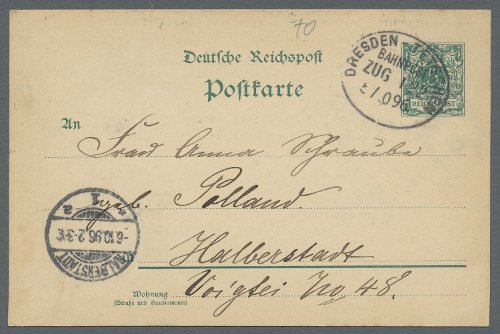 70
Deutsche Reichspost
Postkarte
DRESDEN
BAHNPOST
ZUG
REICHSPOST
An
Frau Anna Schraube
geb. Polland.
Halberstadt
Voigtei No 48.
Wohnung
(Straße und Hausnummer)
HALBERSTADT
1 a
-6.10.96.2-3